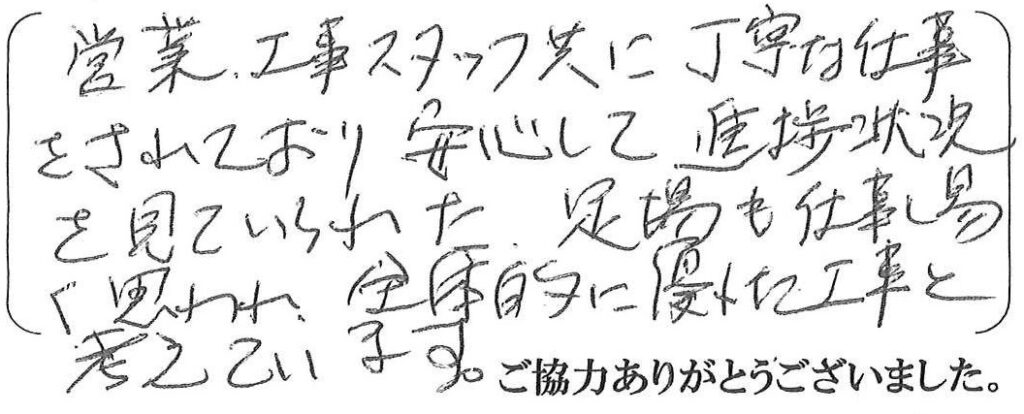 営業、工事スタッフ共に丁寧な仕事
をされており安心して進捗状況
を見ていられた。足場も仕事し易
く思われ、全体的に優れた工事と
考えています。
ご協力ありがとうございました。